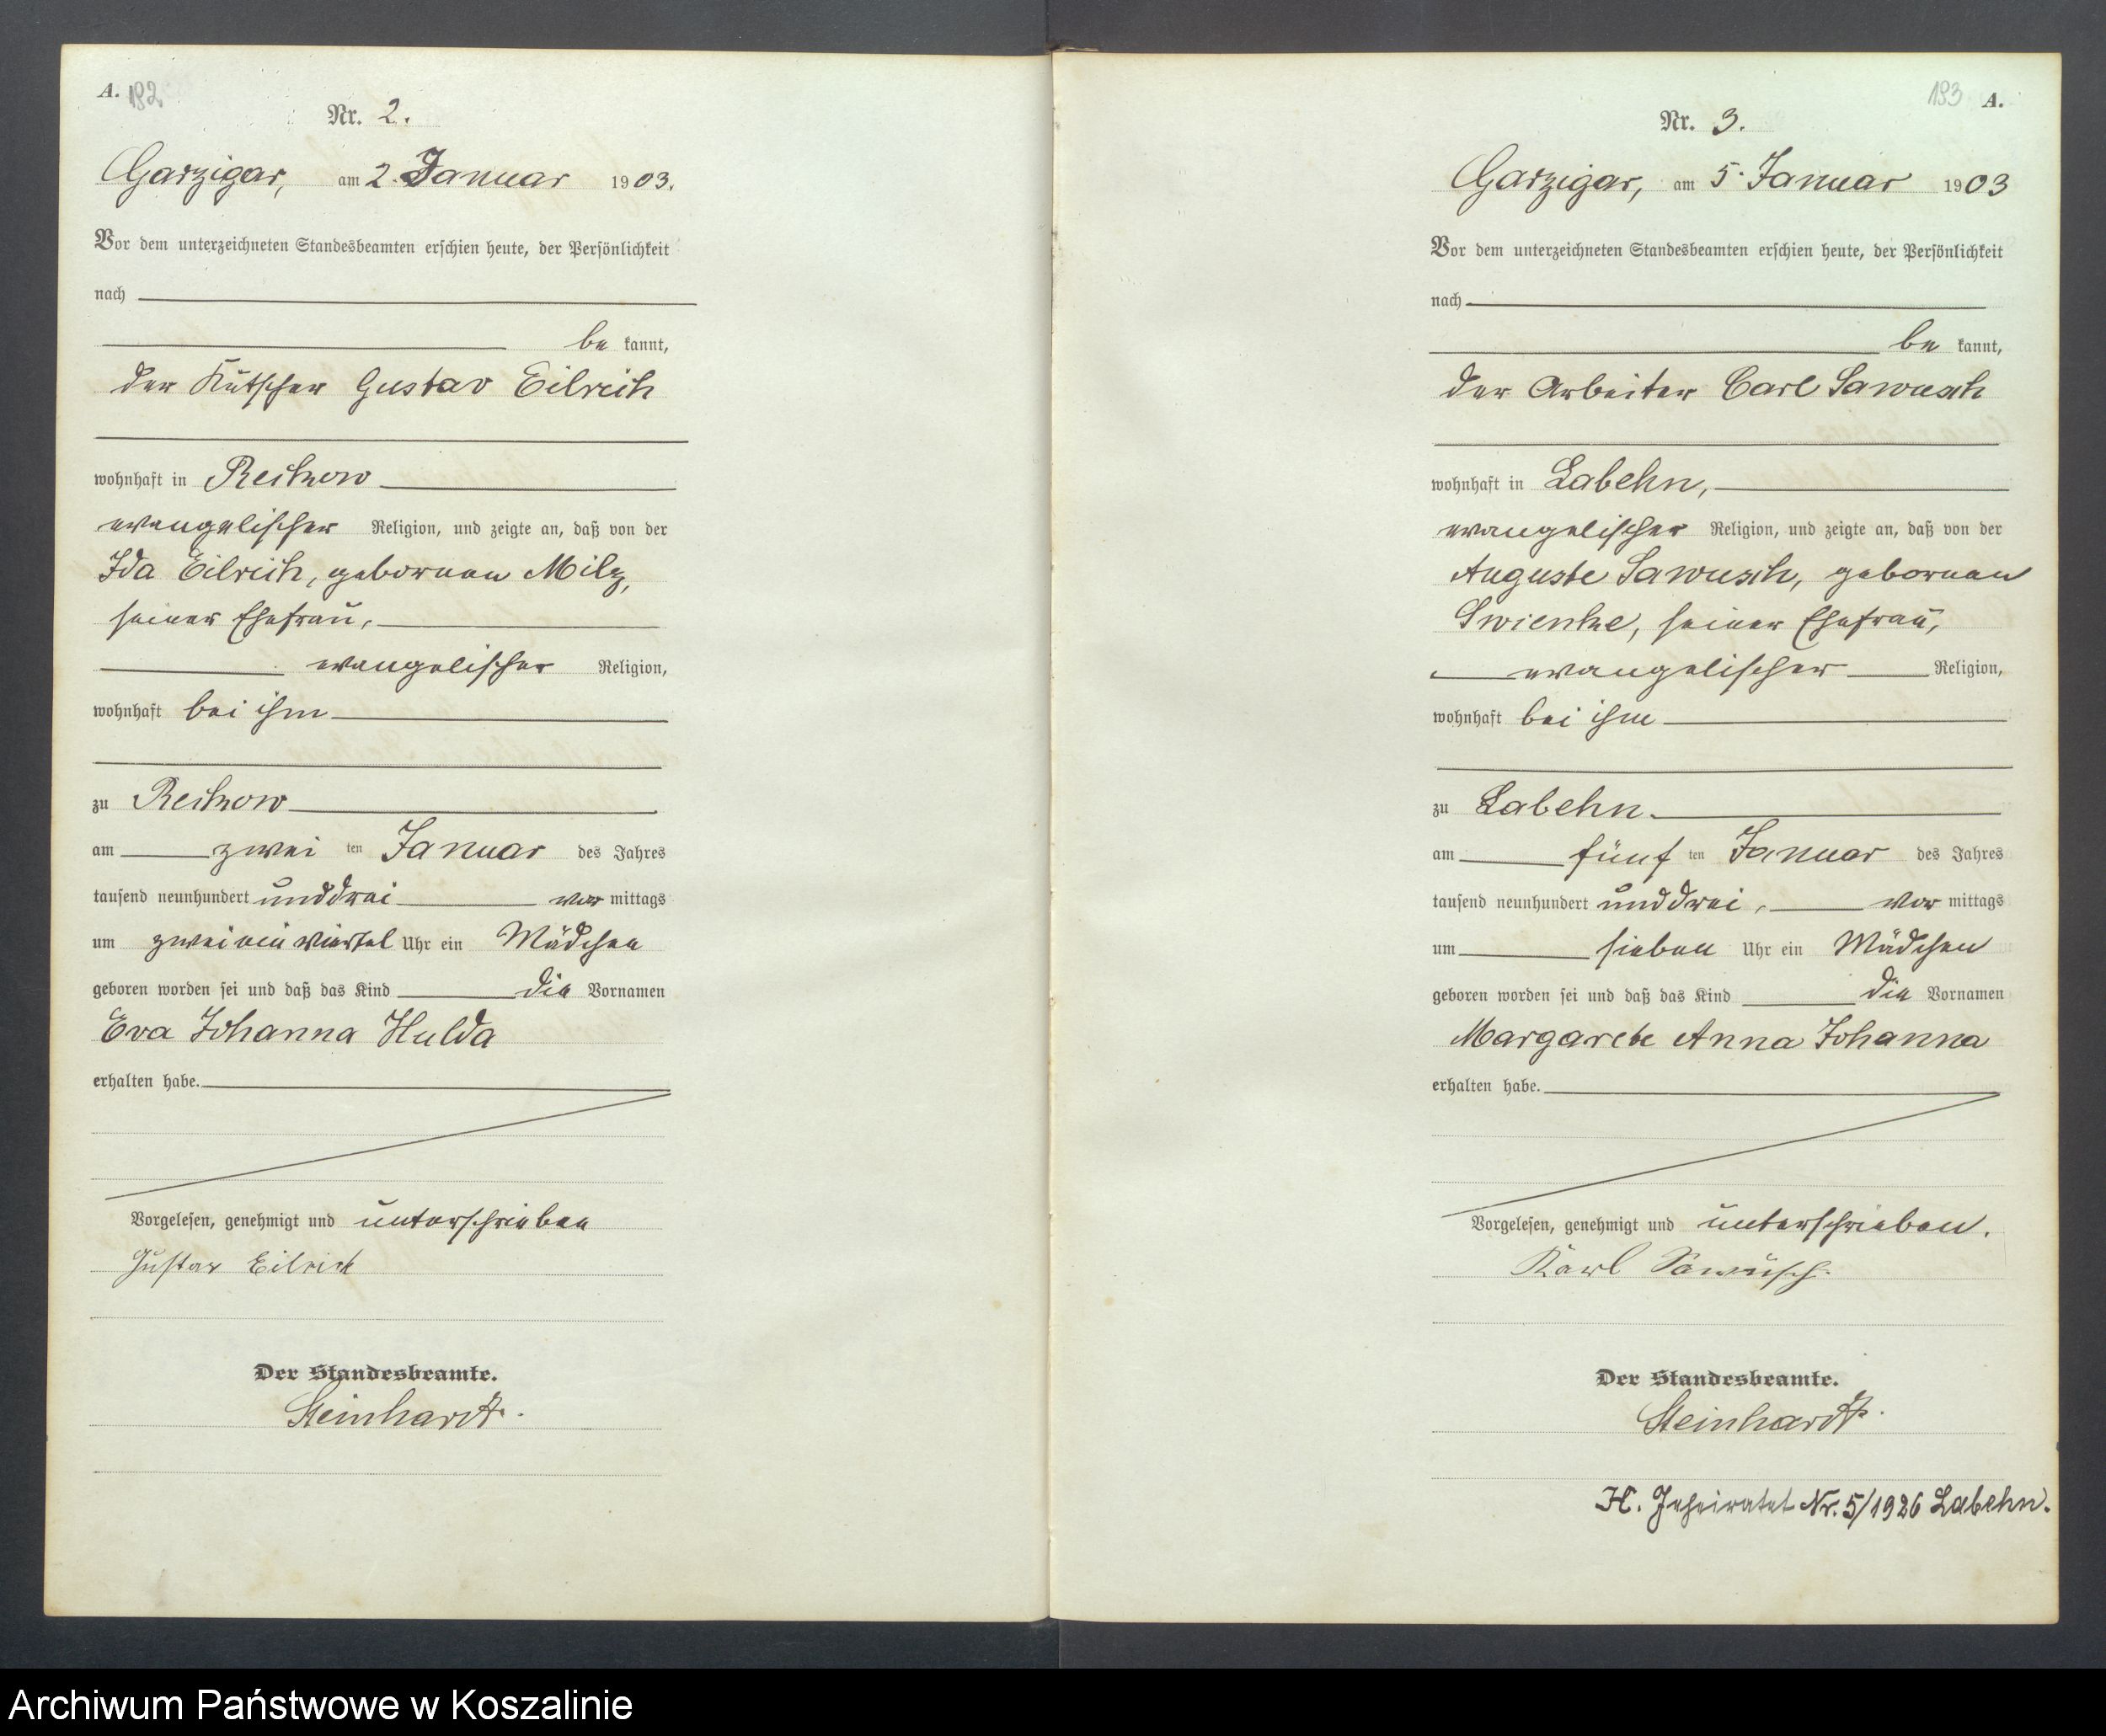 A. 182.
Nr. 2.
Garzigar, am 2. Januar 1903.
Vor dem unterzeichneten Standesbeamten erschien heute, der Persönlichkeit
nach
be kannt,
der Kutscher Gustav Eilrich
wohnhaft in Reckow
evangelischer Religion, und zeigte an, daß von der
Ida Eilrich, geborenen Milz,
seiner Ehefrau,
evangelischer Religion,
wohnhaft bei ihm
zu Reckow
am zwei ten Januar des Jahres
tausend neunhundert unddrei vor mittags
um zweieinviertel Uhr ein Mädchen
geboren worden sei und daß das Kind die Vornamen
Eva Johanna Hulda
erhalten habe.
Vorgelesen, genehmigt und unterschrieben
Gustav Eilrich
Der Standesbeamte.
Steinhardt.
183 A.
Nr. 3.
Garzigar, am 5. Januar 1903
Vor dem unterzeichneten Standesbeamten erschien heute, der Persönlichkeit
nach
be kannt,
der Arbeiter Carl Sawusch
wohnhaft in Labehn,
evangelischer Religion, und zeigte an, daß von der
Auguste Sawusch, geborenen
Swienke, seiner Ehefrau,
evangelischer Religion,
wohnhaft bei ihm
zu Labehn
am fünf ten Januar des Jahres
tausend neunhundert unddrei, vor mittags
um sieben Uhr ein Mädchen
geboren worden sei und daß das Kind die Vornamen
Margarete Anna Johanna
erhalten habe.
Vorgelesen, genehmigt und unterschrieben.
Karl Sawusch.
Der Standesbeamte.
Steinhardt.
H. Geheiratet Nr. 5/1926 Labehn.
Archiwum Państwowe w Koszalinie